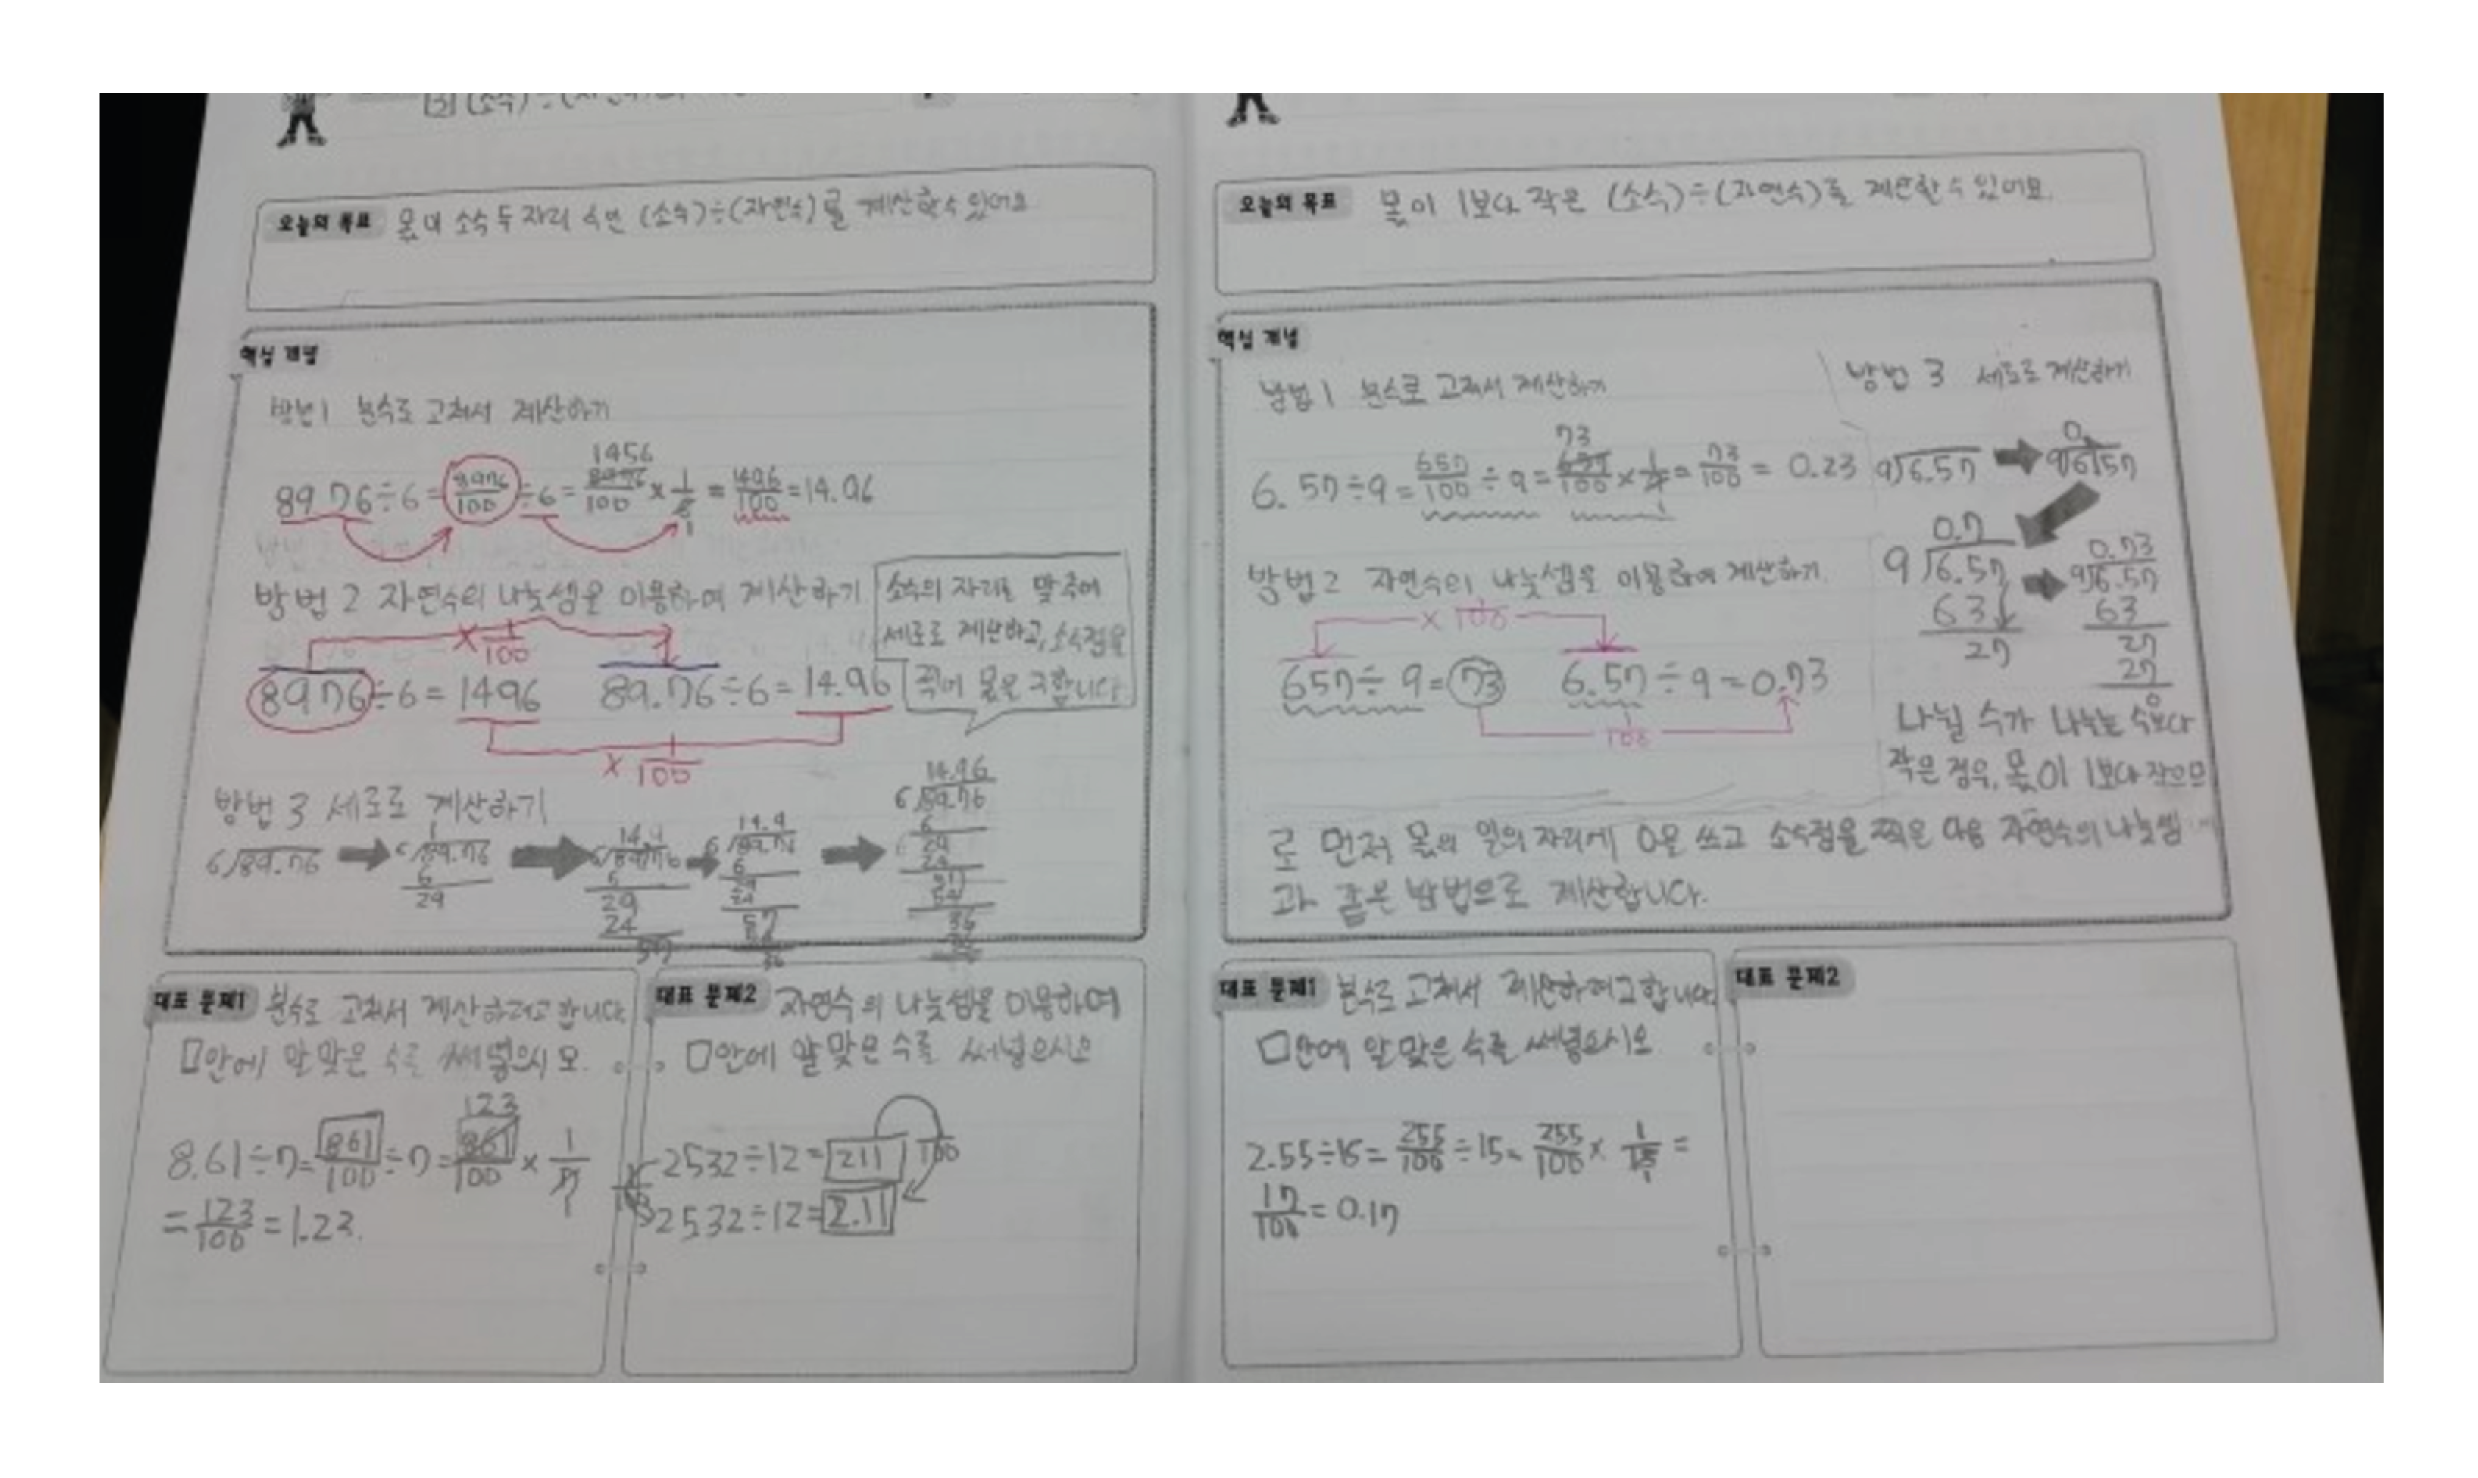 오늘의 목표 몫이 소수 두 자리 수인 (소수)÷(자연수)를 계산할 수 있어요
핵심 개념
방법1 분수로 고쳐서 계산하기
1456
89.76÷6=8976/100÷6=8976/100×1/6=1496/100=14.96
1
방법 2 자연수의 나눗셈을 이용하여 계산하기
소수의 자리를 맞추어
세로로 계산하고, 소수점을
찍어 몫을 구합니다.
×1/100
8976÷6=1496 89.76÷6=14.96
×1/100
방법 3 세로로 계산하기
14.96
6)89.76 1 14.9 14.9 6)89.76
6)89.76 6)89.76 6)89.76
6 6 6 6
29 29 29 29
24 24 24
57 57 57
54 54
36 36
36
대표 문제1 분수로 고쳐서 계산하려고 합니다.
□안에 알맞은 수를 써넣으시오.
123
8.61÷7=861/100÷7=861/100×1/7
1
=123/100=1.23.
대표 문제2 자연수의 나눗셈을 이용하여
□안에 알맞은 수를 써넣으시오
2532÷12=211 1/100
2532÷12=2.11
오늘의 목표 몫이 1보다 작은 (소수)÷(자연수)를 계산할 수 있어요.
핵심 개념
방법 1 분수로 고쳐서 계산하기
73
6.57÷9=657/100÷9=657/100×1/9=73/100=0.23
1
방법2 자연수의 나눗셈을 이용하여 계산하기
×1/100
657÷9=73 6.57÷9=0.73
1/100
방법 3 세로로 계산하기
0.
9)6.57 9)6.57
0.7 0.73
9)6.57 9)6.57
63 63
27 27
27
0
나뉠 수가 나누는 수보다
작은 경우, 몫이 1보다 작으므
로 먼저 몫의 일의 자리에 0을 쓰고 소수점을 찍은 다음 자연수의 나눗셈
과 같은 방법으로 계산합니다.
대표 문제1 분수로 고쳐서 계산하려고 합니다
□안에 알맞은 수를 써넣으시오
2.55÷15=255/100÷15=255/100×1/15=
1
17/100=0.17
대표 문제2